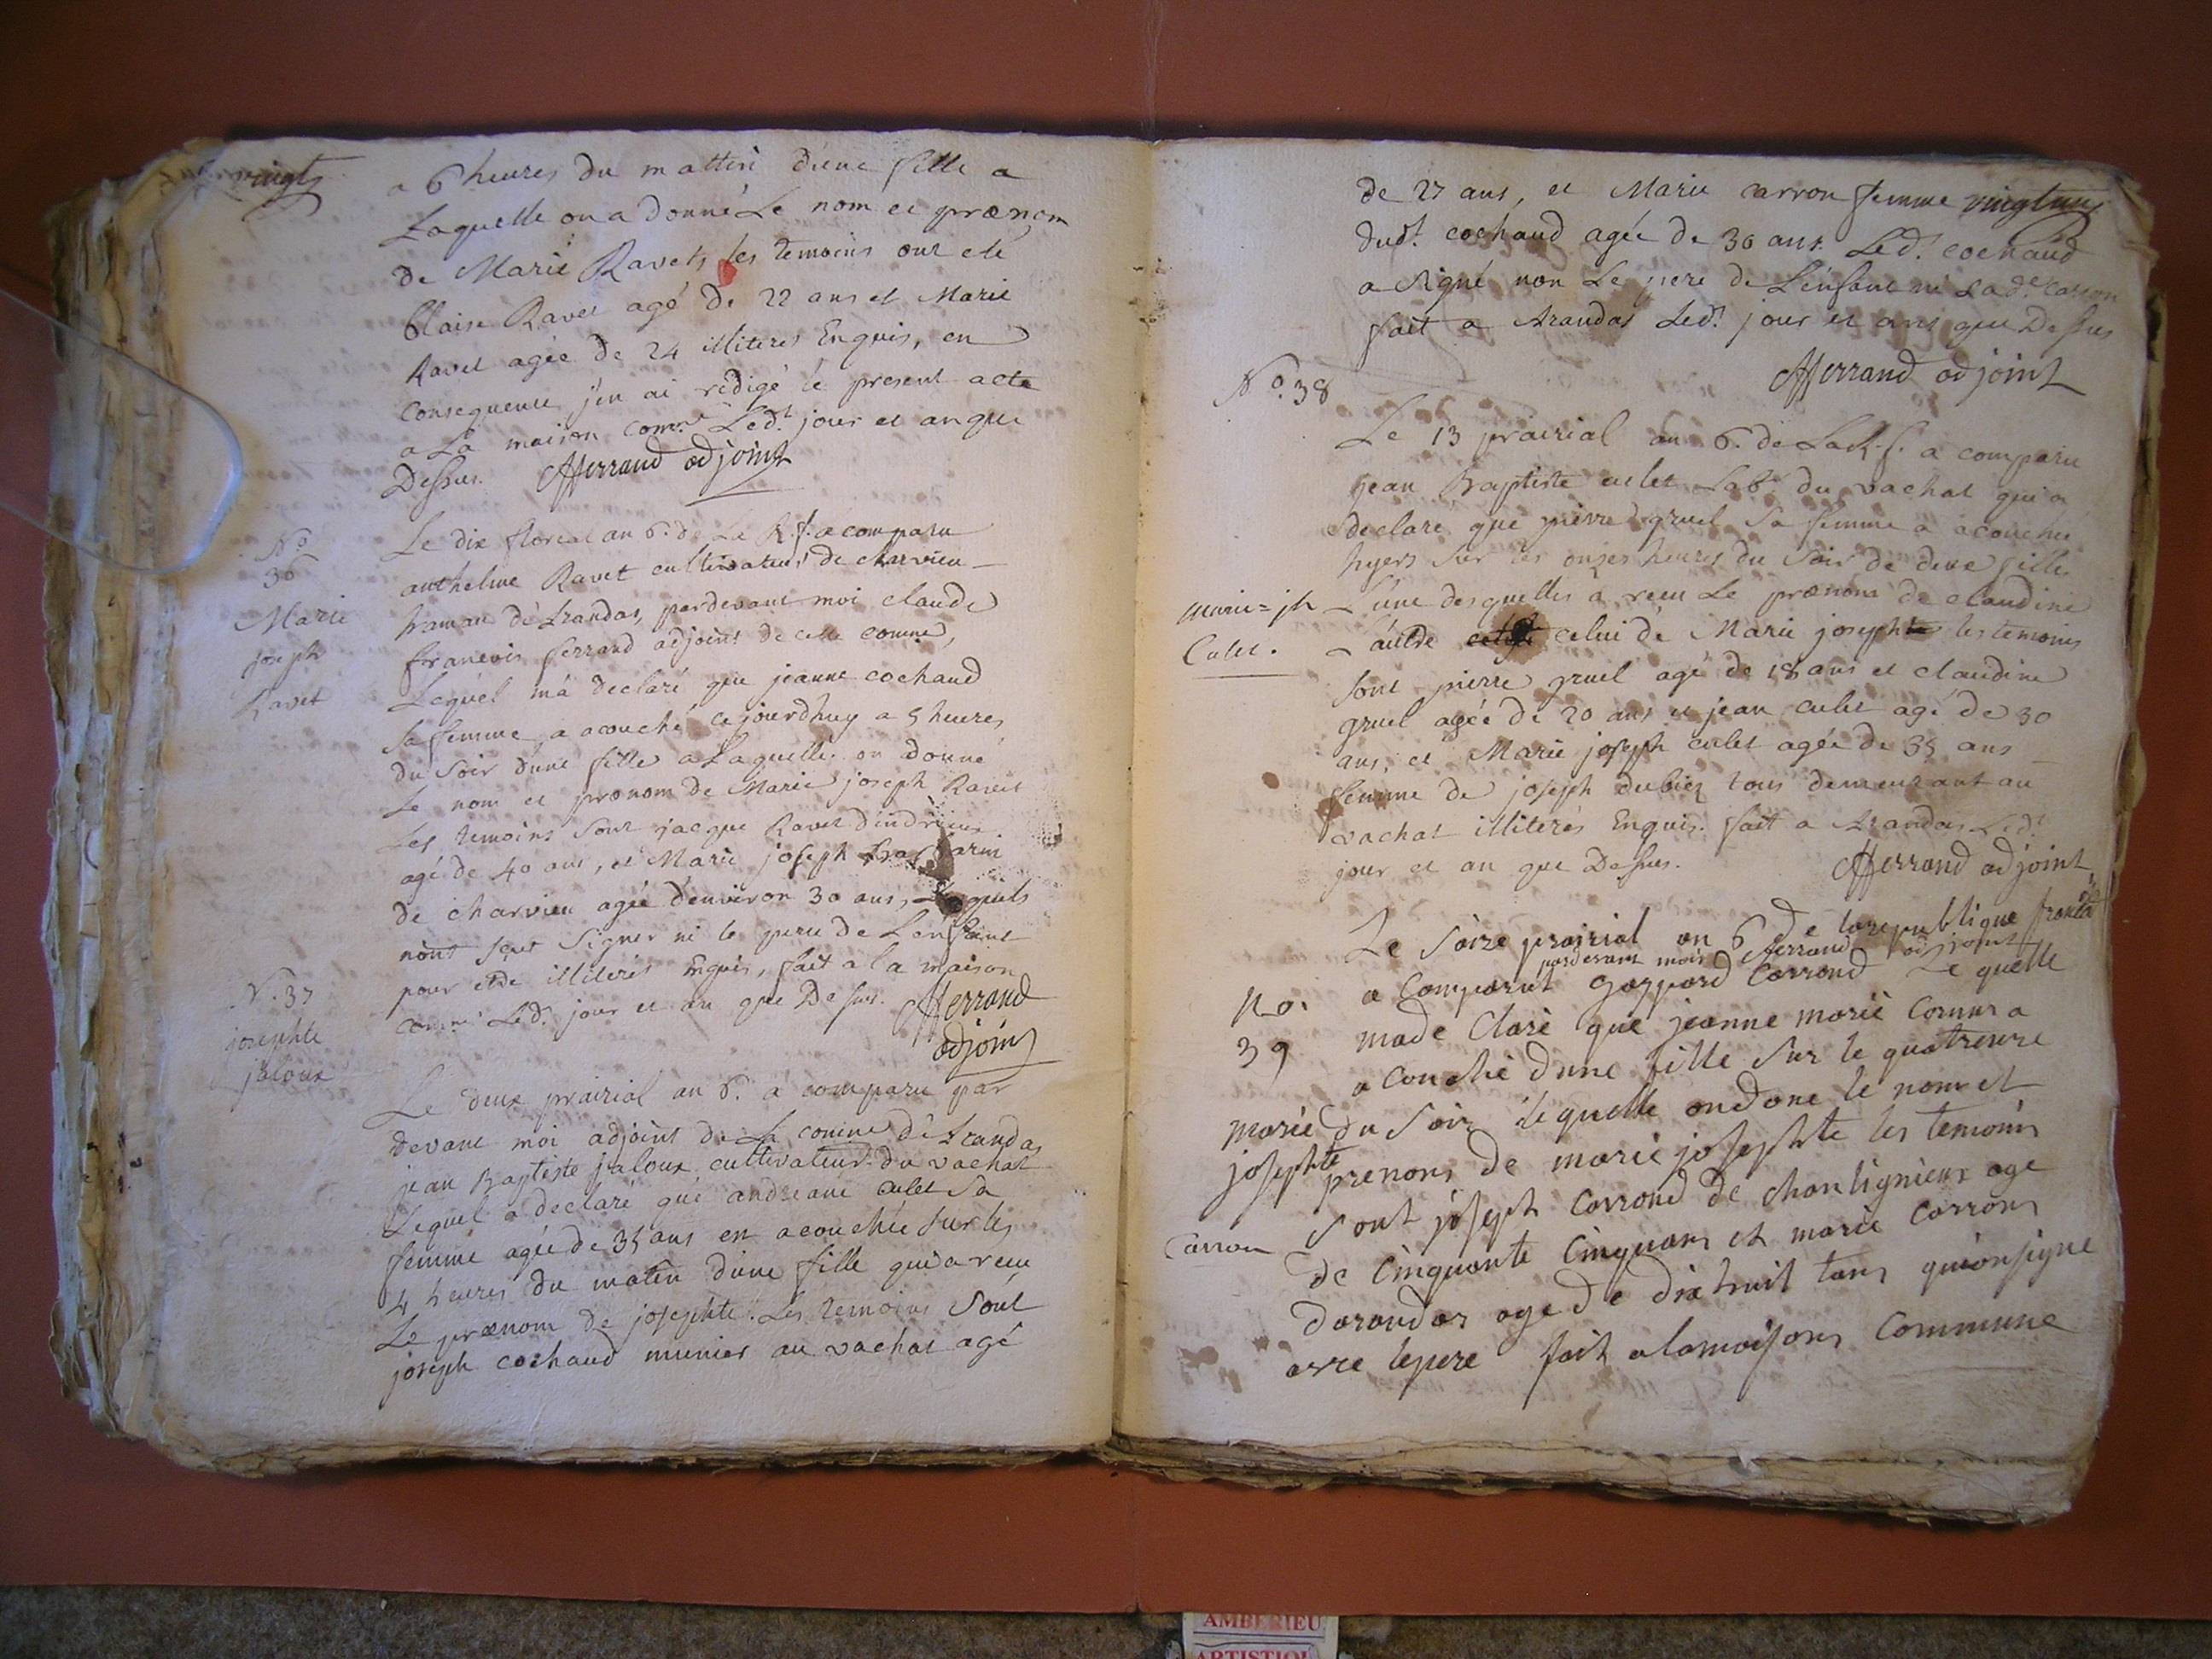 vingt
a 6 heures du mattin d'une fille a
Laquelle on a donné Le nom et prænom
de Marie Ravet, les temoins ont eté
blaise Ravet agé de 22 ans et Marie
Ravet agée de 24 illiteres Enquis, en
consequence j'en ai redigé le present acte
a La maison comne Ledt jour et an que
Dessus. CfFerrand adjoint
No
36
Marie
joseph
Ravet
Le dix floreal an 6. de La R. f. a comparu
anthelme Ravet cultivateur de charvieu
hamau d'Arandas, pardevant moi claude
francois ferrand adjoint de cette comne,
Lequel m'a declaré que jeanne cochand
sa femme a acouché cejourd'huy a 5 heures
du soir d'une fille a Laquelle on donné
Le nom et pronom de Marie joseph Ravet
Les temoins sont jacque Ravet d'indrieux
agé de 40 ans, et Marie joseph
de charvieu agée d'environ 30 ans, Lesquels
n'ont sçut signer ni le pere de L'enfant
pour etre illiterés enquis, fait a la maison
comne Ledt jour et an que Dessus. CfFerrand
adjoint
No. 37
josephte
jaloux
Le deux prairial an 6. a comparu par
devant moi adjoint de La comne d'Arandas
jean Baptiste jaloux cultivateur du vachat
Lequel a declaré que andreane culet sa
femme agée de 35 ans en acouchée sur les
4 heures du matin d'une fille qui a recu
Le prænom de josephte. Les temoins sont
joseph cochand munier au vachat agé
vingt un
de 27 ans, et Marie carron femme
dudt. cochand agée de 30 ans. Ledt. cochand
a signé non Le pere de L'enfant ni Lade. carron
fait a Arandas Ledt jour et ans que Dessus
CfFerrand adjoint
No. 38
Le 13 prairial an 6. de La R. f. a comparu
jean Baptiste culet Labr du vachat qui a
declaré que pierre gruel sa femme a acouchée
hyers sur les onzes heures du soir de deux filles
marie = jh
Culet.
L'une desquelles a recu Le prænom de claudine
L'autre celui de Marie josephte les temoins
sont pierre gruel agé de 18 ans et claudine
gruel agée de 20 ans et jean culet agé de 30
ans, et Marie joseph culet agée de 35 ans
femme de joseph dubiez tous demeurant au
vachat illiterés Enquis. fait a Arandas Ledt
jour et an que Dessus.
CfFerrand adjoint
Le saize prairial an 6 de la republique francai
pardevant moi cfferrand adjoint
a comparut gaspard Carrond Le quelle
no.
39
made Claré que jeanne marie Comm a
a Couché dune fille sur le quatreure
marie
josephte
Carron
du soir lequelle ondone le nom et
prenons de marie josephte les temoins
sont joseph Carrond de chantignieux age
de Cinquante Cinquans et marie Carrons
darandas age de dix huit tans quionsigne
avec lepere fait alamaisons Commune
AMBERIEU
ARTISTIQU